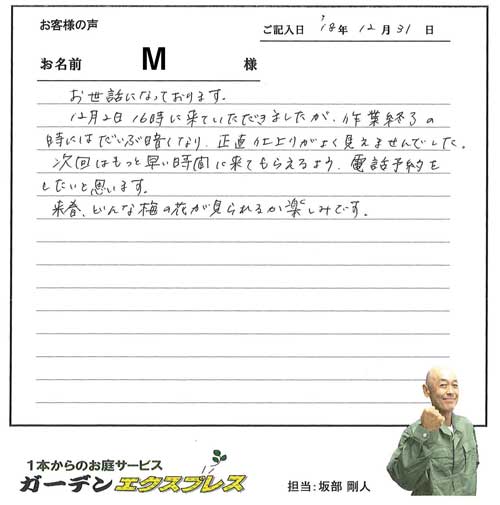 お客様の声
ご記入日 '18年 12月 31日
お名前 M 様
お世話になっております。
12月2日 16時に来ていただきましたが、作業終了の
時にはだいぶ暗くなり、正直仕上りがよく見えませんでした。
次回はもっと早い時間に来てもらえるよう、電話予約を
したいと思います。
来春、どんな梅の花が見られるか楽しみです。
1本からのお庭サービス
ガーデンエクスプレス
担当:坂部 剛人